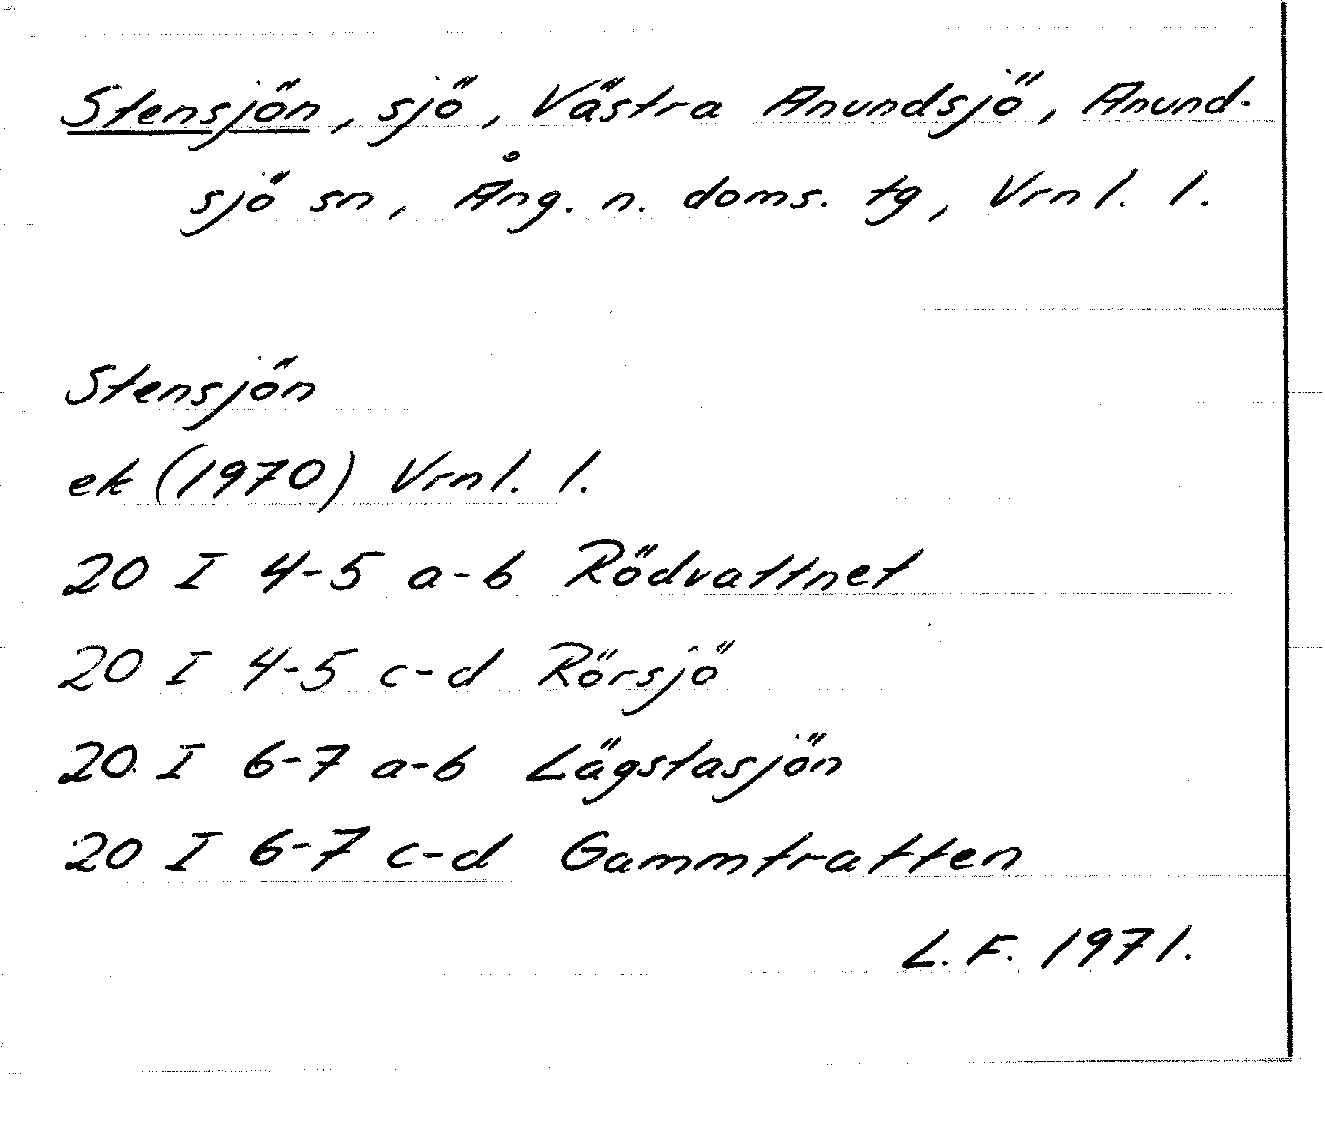 Stensjön, sjö, Västra Anundsjö, Anund-
sjö sn, Ång. n. doms. tg, Vrnl. l.
Stensjön
ek (1970) Vrnl. l.
20 I 4-5 a-b Rödvattnet
20 I 4-5 c-d Rörsjö
20 I 6-7 a-b Lägstasjön
20 I 6-7 c-d Gammtratten
L. F. 1971.